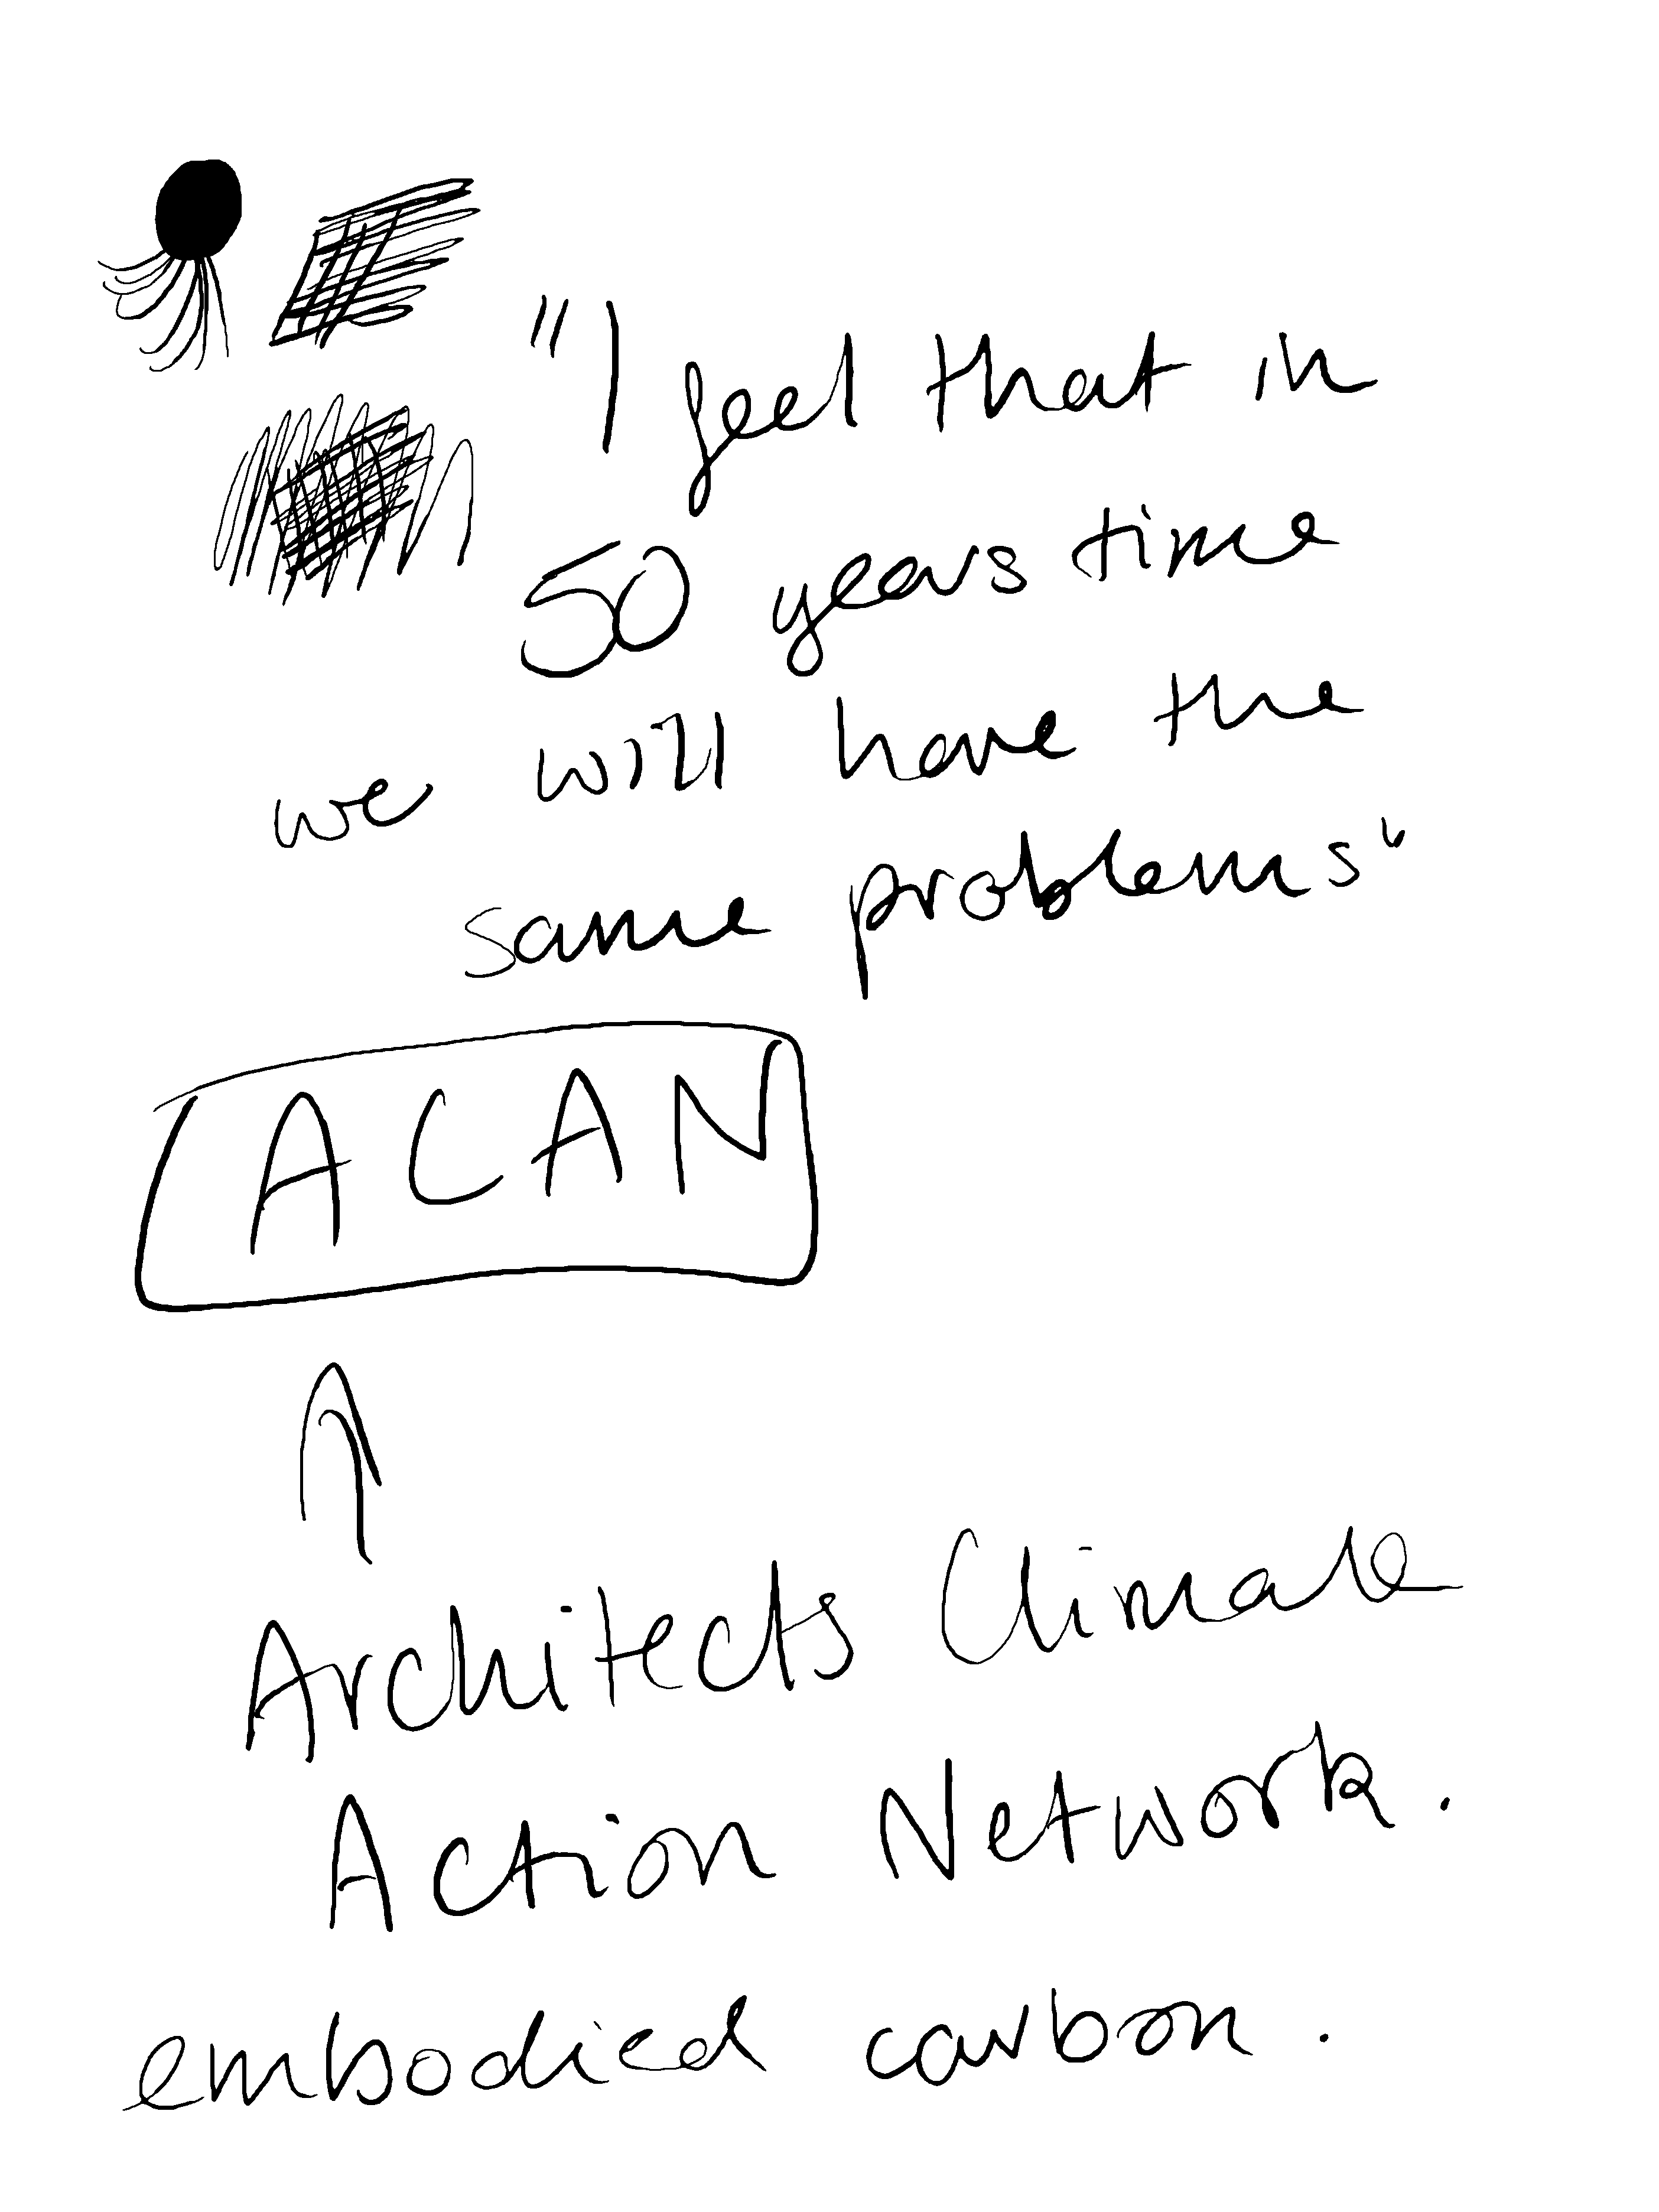 "I feel that in
50 years time
we will have the
same problems"
ACAN
Architects Climate
Action Network.
embodied carbon.